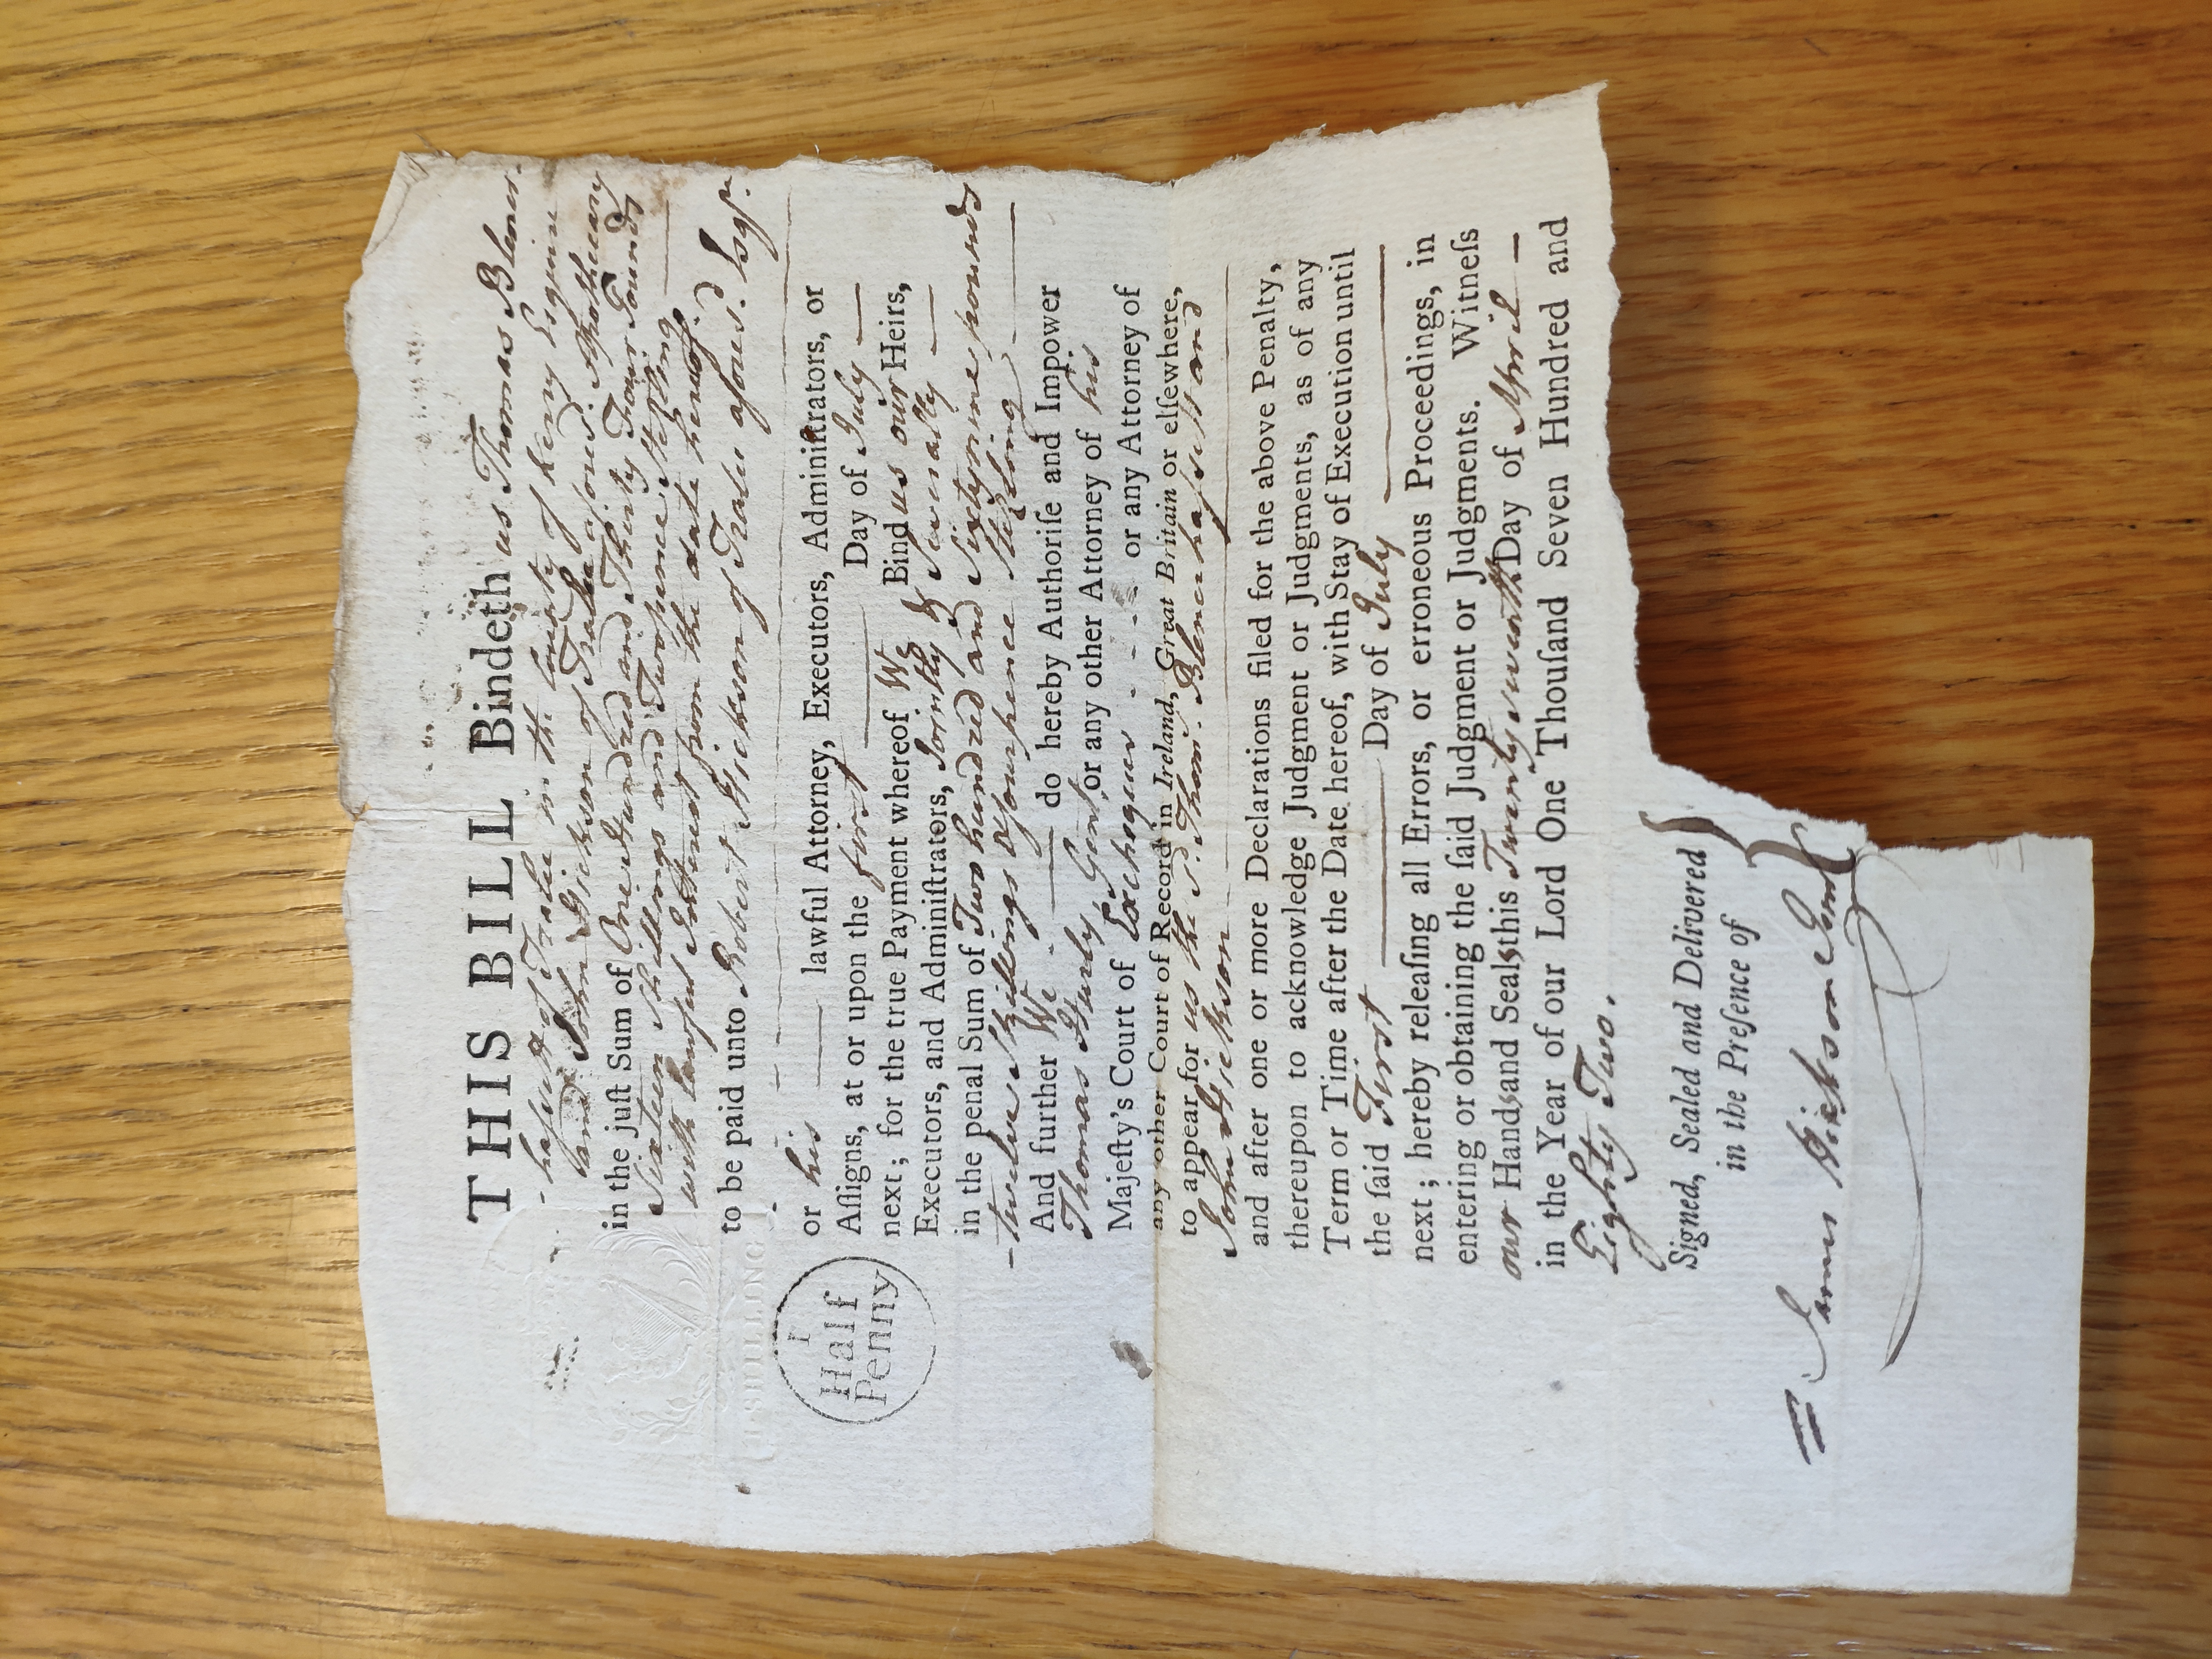 THIS BILL Bindeth us Thomas Blener-
-hassett of Tralee in the County of Kerry Esquire
and John Hickson of Tralee aforesd. Apothecary
in the juſt Sum of One Hundred and Thirty Four Pounds
Sixteen Shillings and Twopence Sterling
with lawful Interest from the date hereof.
to be paid unto Robert Hickson of Tralee aforesd. Esqr.
or his lawful Attorney, Executors, Adminiſtrators, or
Aſſigns, at or upon the first Day of July
next; for the true Payment whereof We Bind us our Heirs,
Executors, and Adminiſtrators, Jointly & Severally
in the penal Sum of Two hundred and Sixtynine pounds
- twelve Shillings & fourpence Sterling
And further We do hereby Authoriſe and Impower
Thomas Gent. or any other Attorney of his
Majeſty's Court of Exchequer or any Attorney of
any other Court of Record in Ireland, Great Britain or elſewhere,
to appear for us the sd. Thoms. Blenerhassett and
John Hickson
and after one or more Declarations filed for the above Penalty,
thereupon to acknowledge Judgment or Judgments, as of any
Term or Time after the Date hereof, with Stay of Execution until
the ſaid First Day of July
next; hereby releaſing all Errors, or erroneous Proceedings, in
entering or obtaining the ſaid Judgment or Judgments. Witneſs
our Hands and Seals this Twenty seventh Day of April
in the Year of our Lord One Thouſand Seven Hundred and
Eighty Two.
Signed, Sealed and Delivered
in the Preſence of
James Hickson
SHILLING
I
Half
Penny